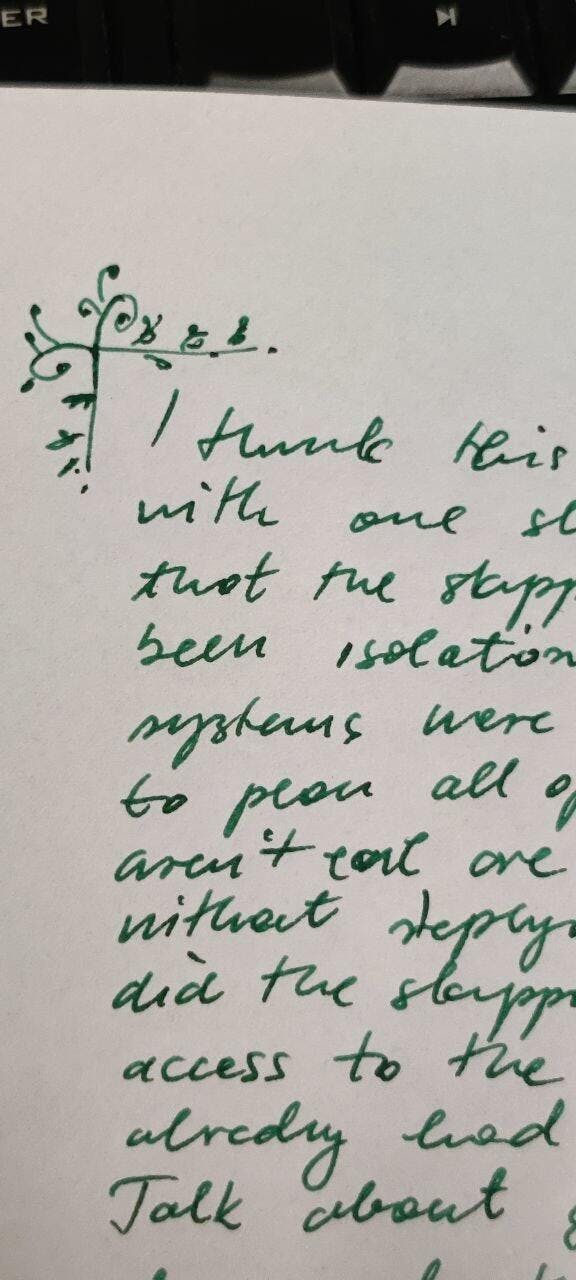 ER
I think this
with one sl
that the skipp
been isolation
systems were
to plan all op
aren't are
without
did the skipp
access to the
already had
Talk about